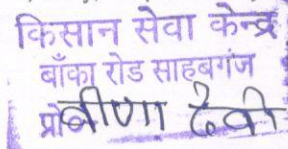 किसान सेवा केन्द्र
बाँका रोड साहबगंज
प्रो० वीणा देवी